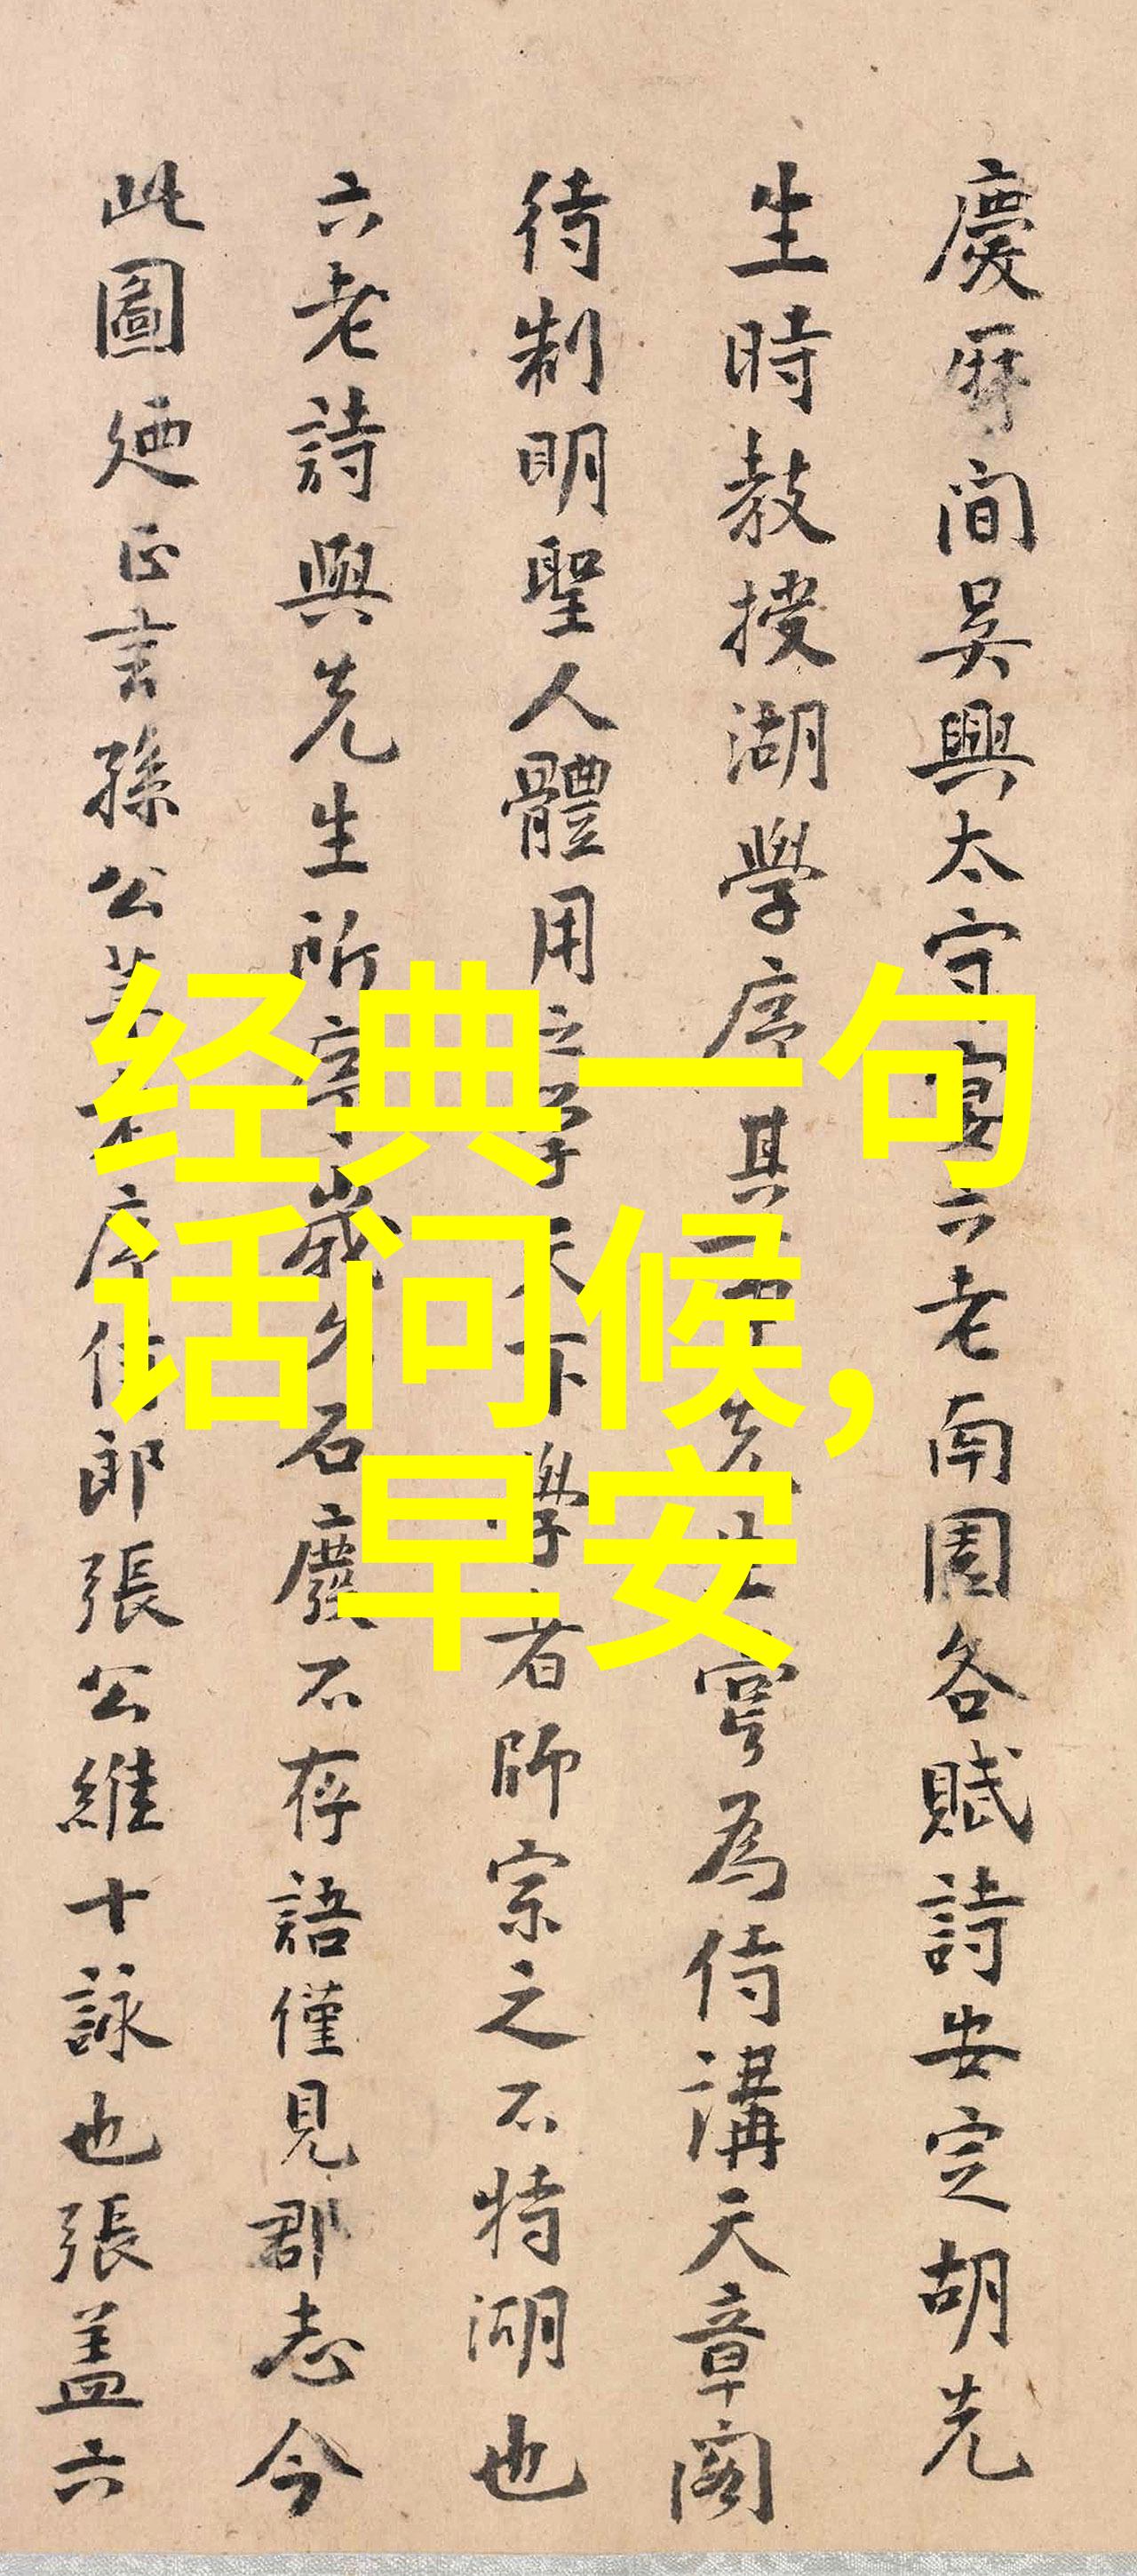 慶曆間吳興太守宴六老南園各賦詩安定胡先
生時教授湖學序其事先生寔為侍講天章閣
待制明聖人體用之學天下學者師宗之不特湖也
六老詩與先生所序歲久石廢不存語僅見郡志今
此圖廼正言孫公序侍郎張公維十詠也張蓋六
经典一句
话问候，
早安